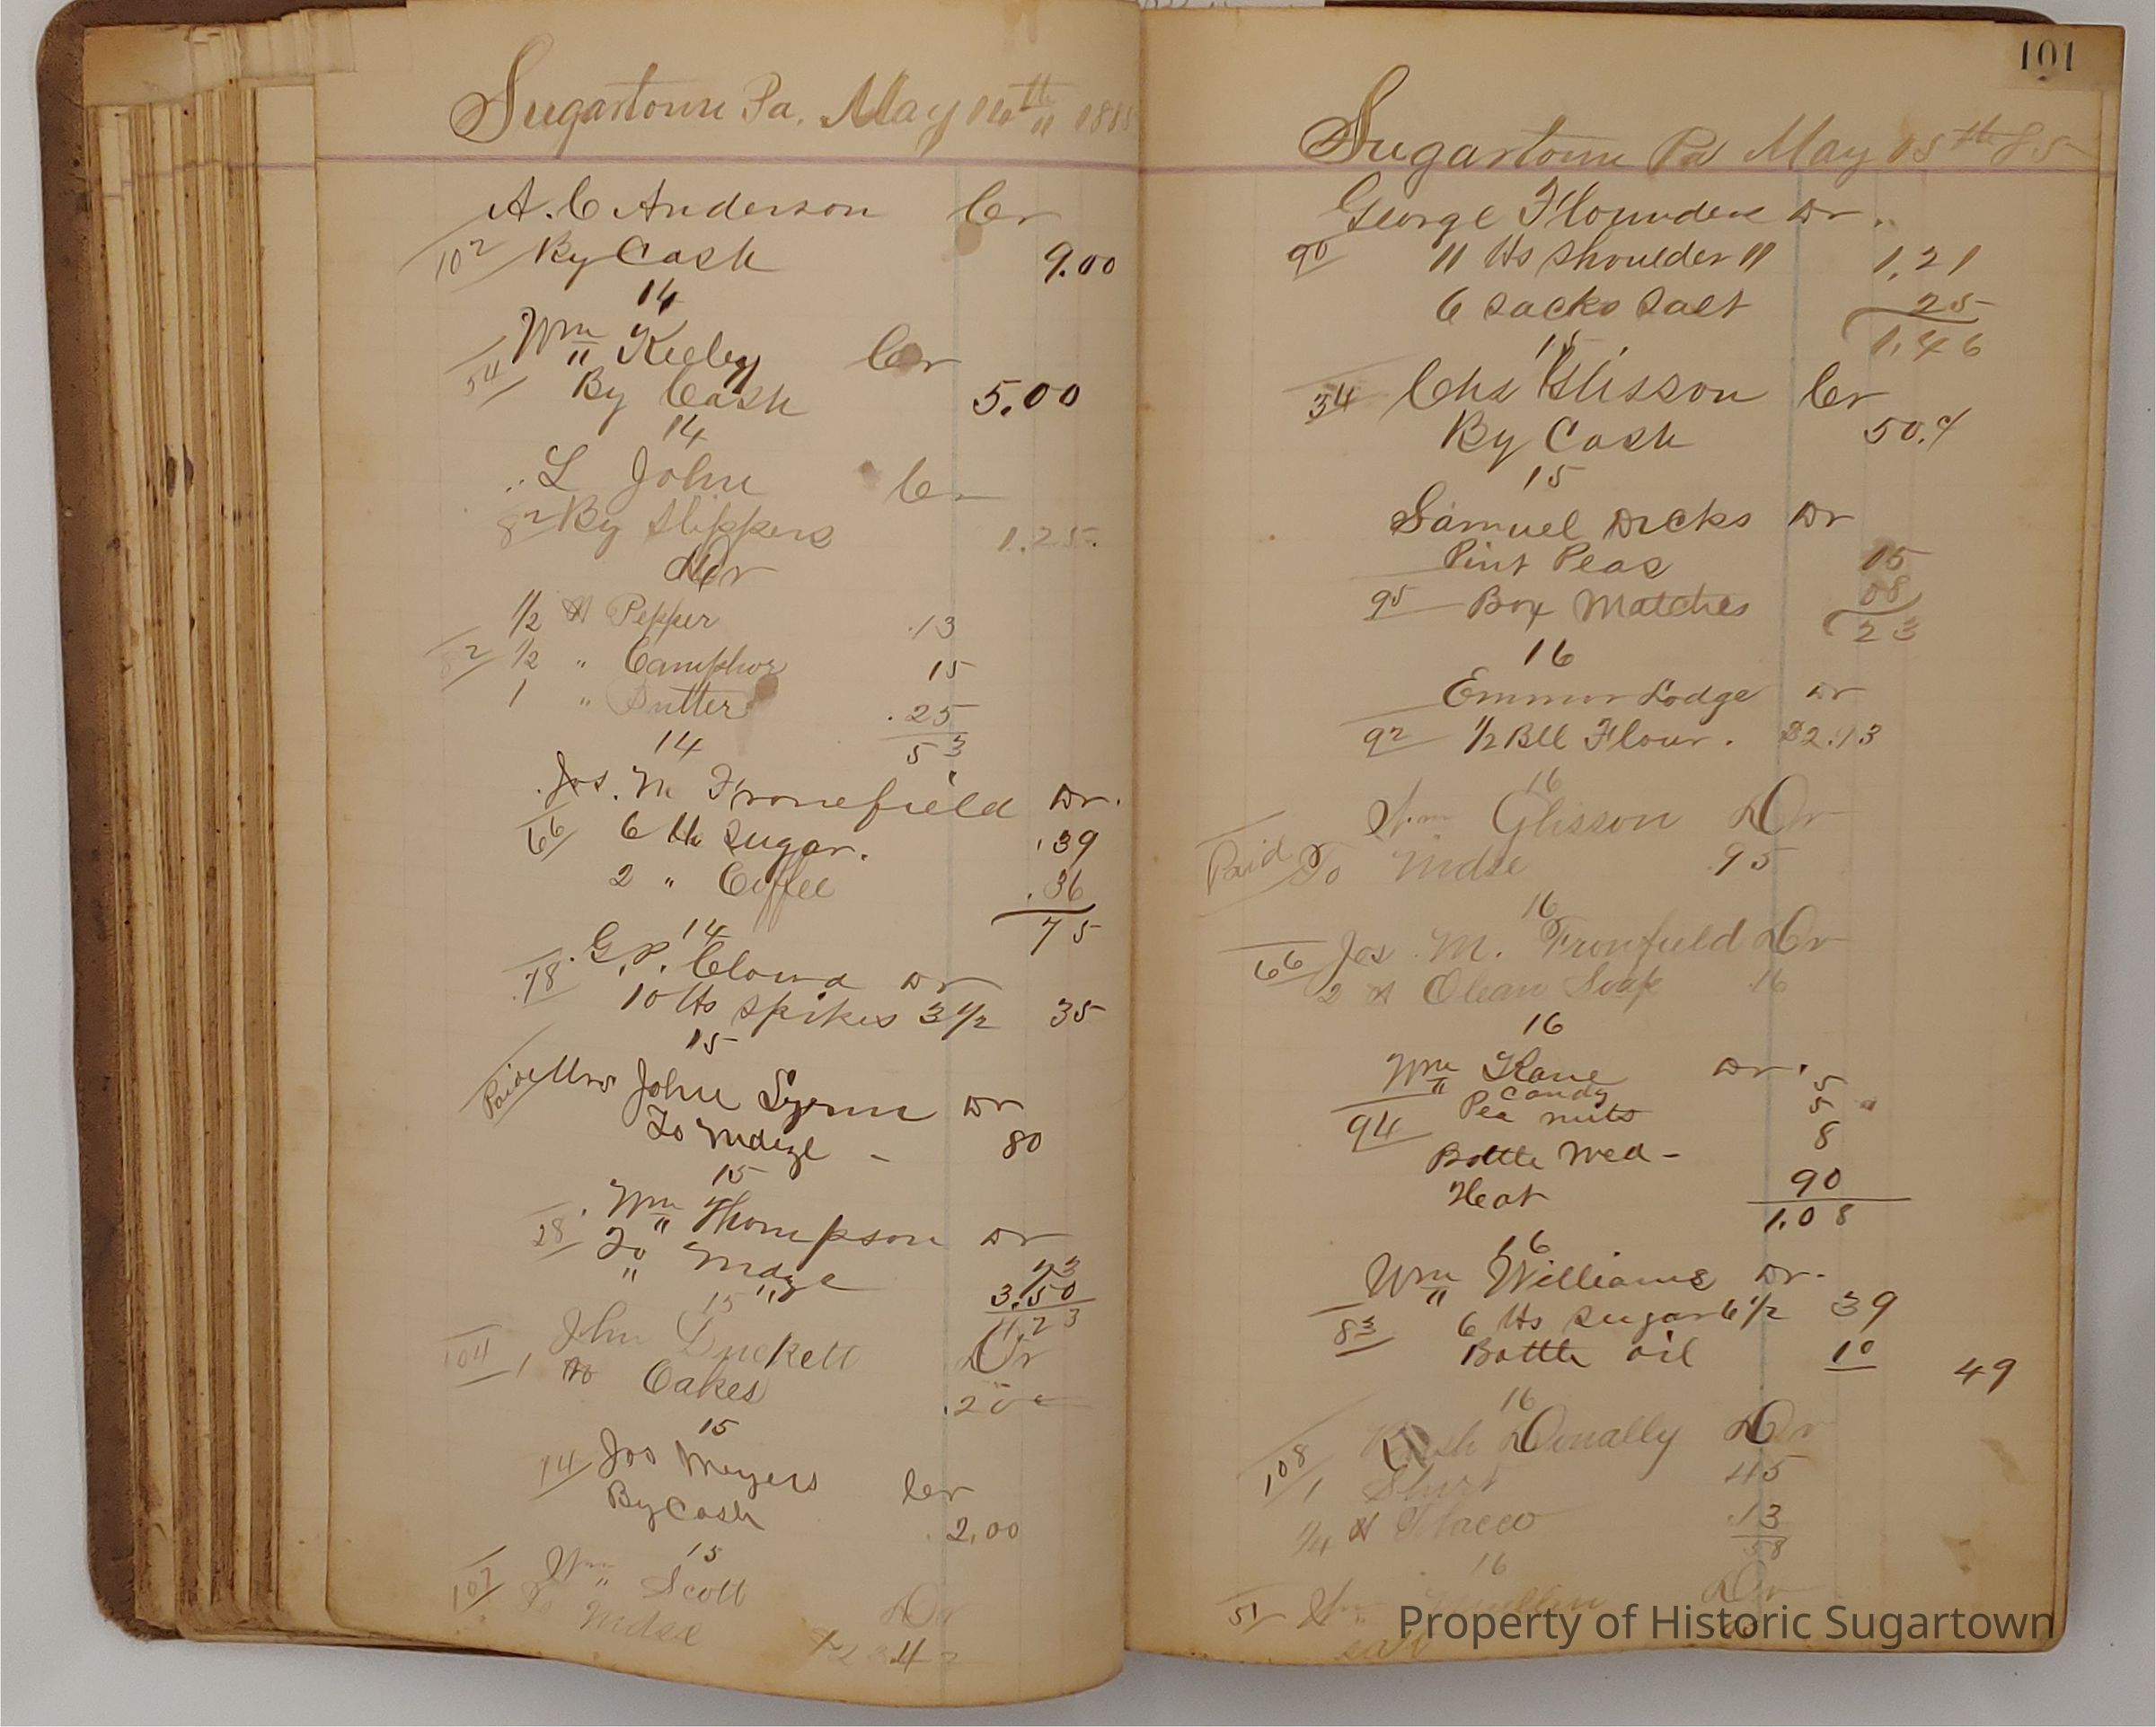 Sugartown Pa. May 14th 1885
A. C Anderson Cr
102 By Cash 9.00
14
Wm Keeley Cr
54 By Cash 5.00
14
L John Cr
82 By Slippers 1.25
Dr
1/2 lb Pepper .13
82 1/2 " Camphor 15
1 " Butter .25
53
14
Jos. M Fronefield Dr.
66 6 lbs Sugar. .39
2 " Coffee .36
75
14
G. P. Cloud Dr
78 10 lbs Spikes 3 1/2 35
15
Paid Mrs John Lynn Dr
To Mdze - 80
15
Wm Thompson Dr
28 To Mdze 73
" " 3.50
4.23
15
104 John Duckett Dr
1 lb Cakes .20
15
74 Jos Meyers Cr
By Cash 2.00
15
107 Wm Scott Dr
To Mdse
101
Sugartown Pa May 15th 85
George Flounders Dr.
90 11 lbs Shoulder 11 1.21
6 Sacks Salt 25
1.46
15
34 Chs Glisson Cr
By Cash 50.
15
Samuel Dicks Dr
Pint Peas 15
95 Box Matches 08
23
16
Emmor Lodge Dr
92 1/2 Bll Flour. $2.13
16
Wm Glisson Dr
Paid To Mdse .95
16
66 Jos. M. Fronfield Dr
2 lb Olean Soap 16
16
Wm Kane Dr.
Candy 5
94 Pea nuts 5
Bottle Med- 8
Heat 90
1.08
16
Wm Williams Dr.
83 6 lbs Sugar 6 1/2 39
Bottle oil 10 49
16
108 Donally Dr
1 Shirt 45
1/4 lb Tobacco .13
58
16
51 Wm Dr
Property of Historic Sugartown